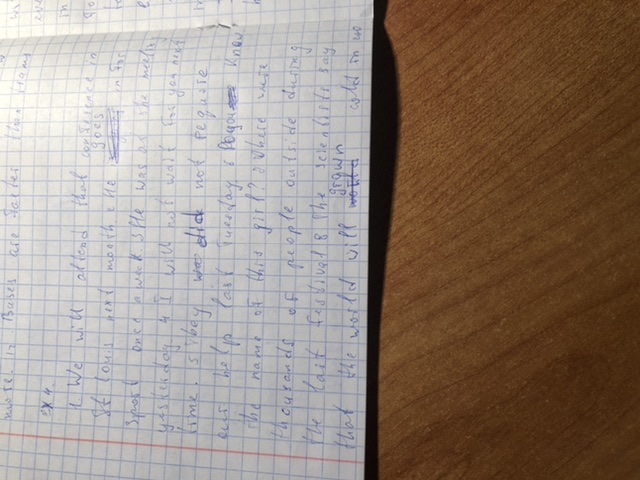 more. 12 Buses are faster than trams
Ex 4.
1 We will attend that conference in
St Louis next month 2 He goes in for
sport once a week 3 He was at the
yesterday 4 I will not wait for you next
time. 5 They did not require
our help last Tuesday 6 Do you know
the name of this girl? 7 There were
thousands of people outside during
the last festival 8 The scientists say
that the world will grown cold in 40